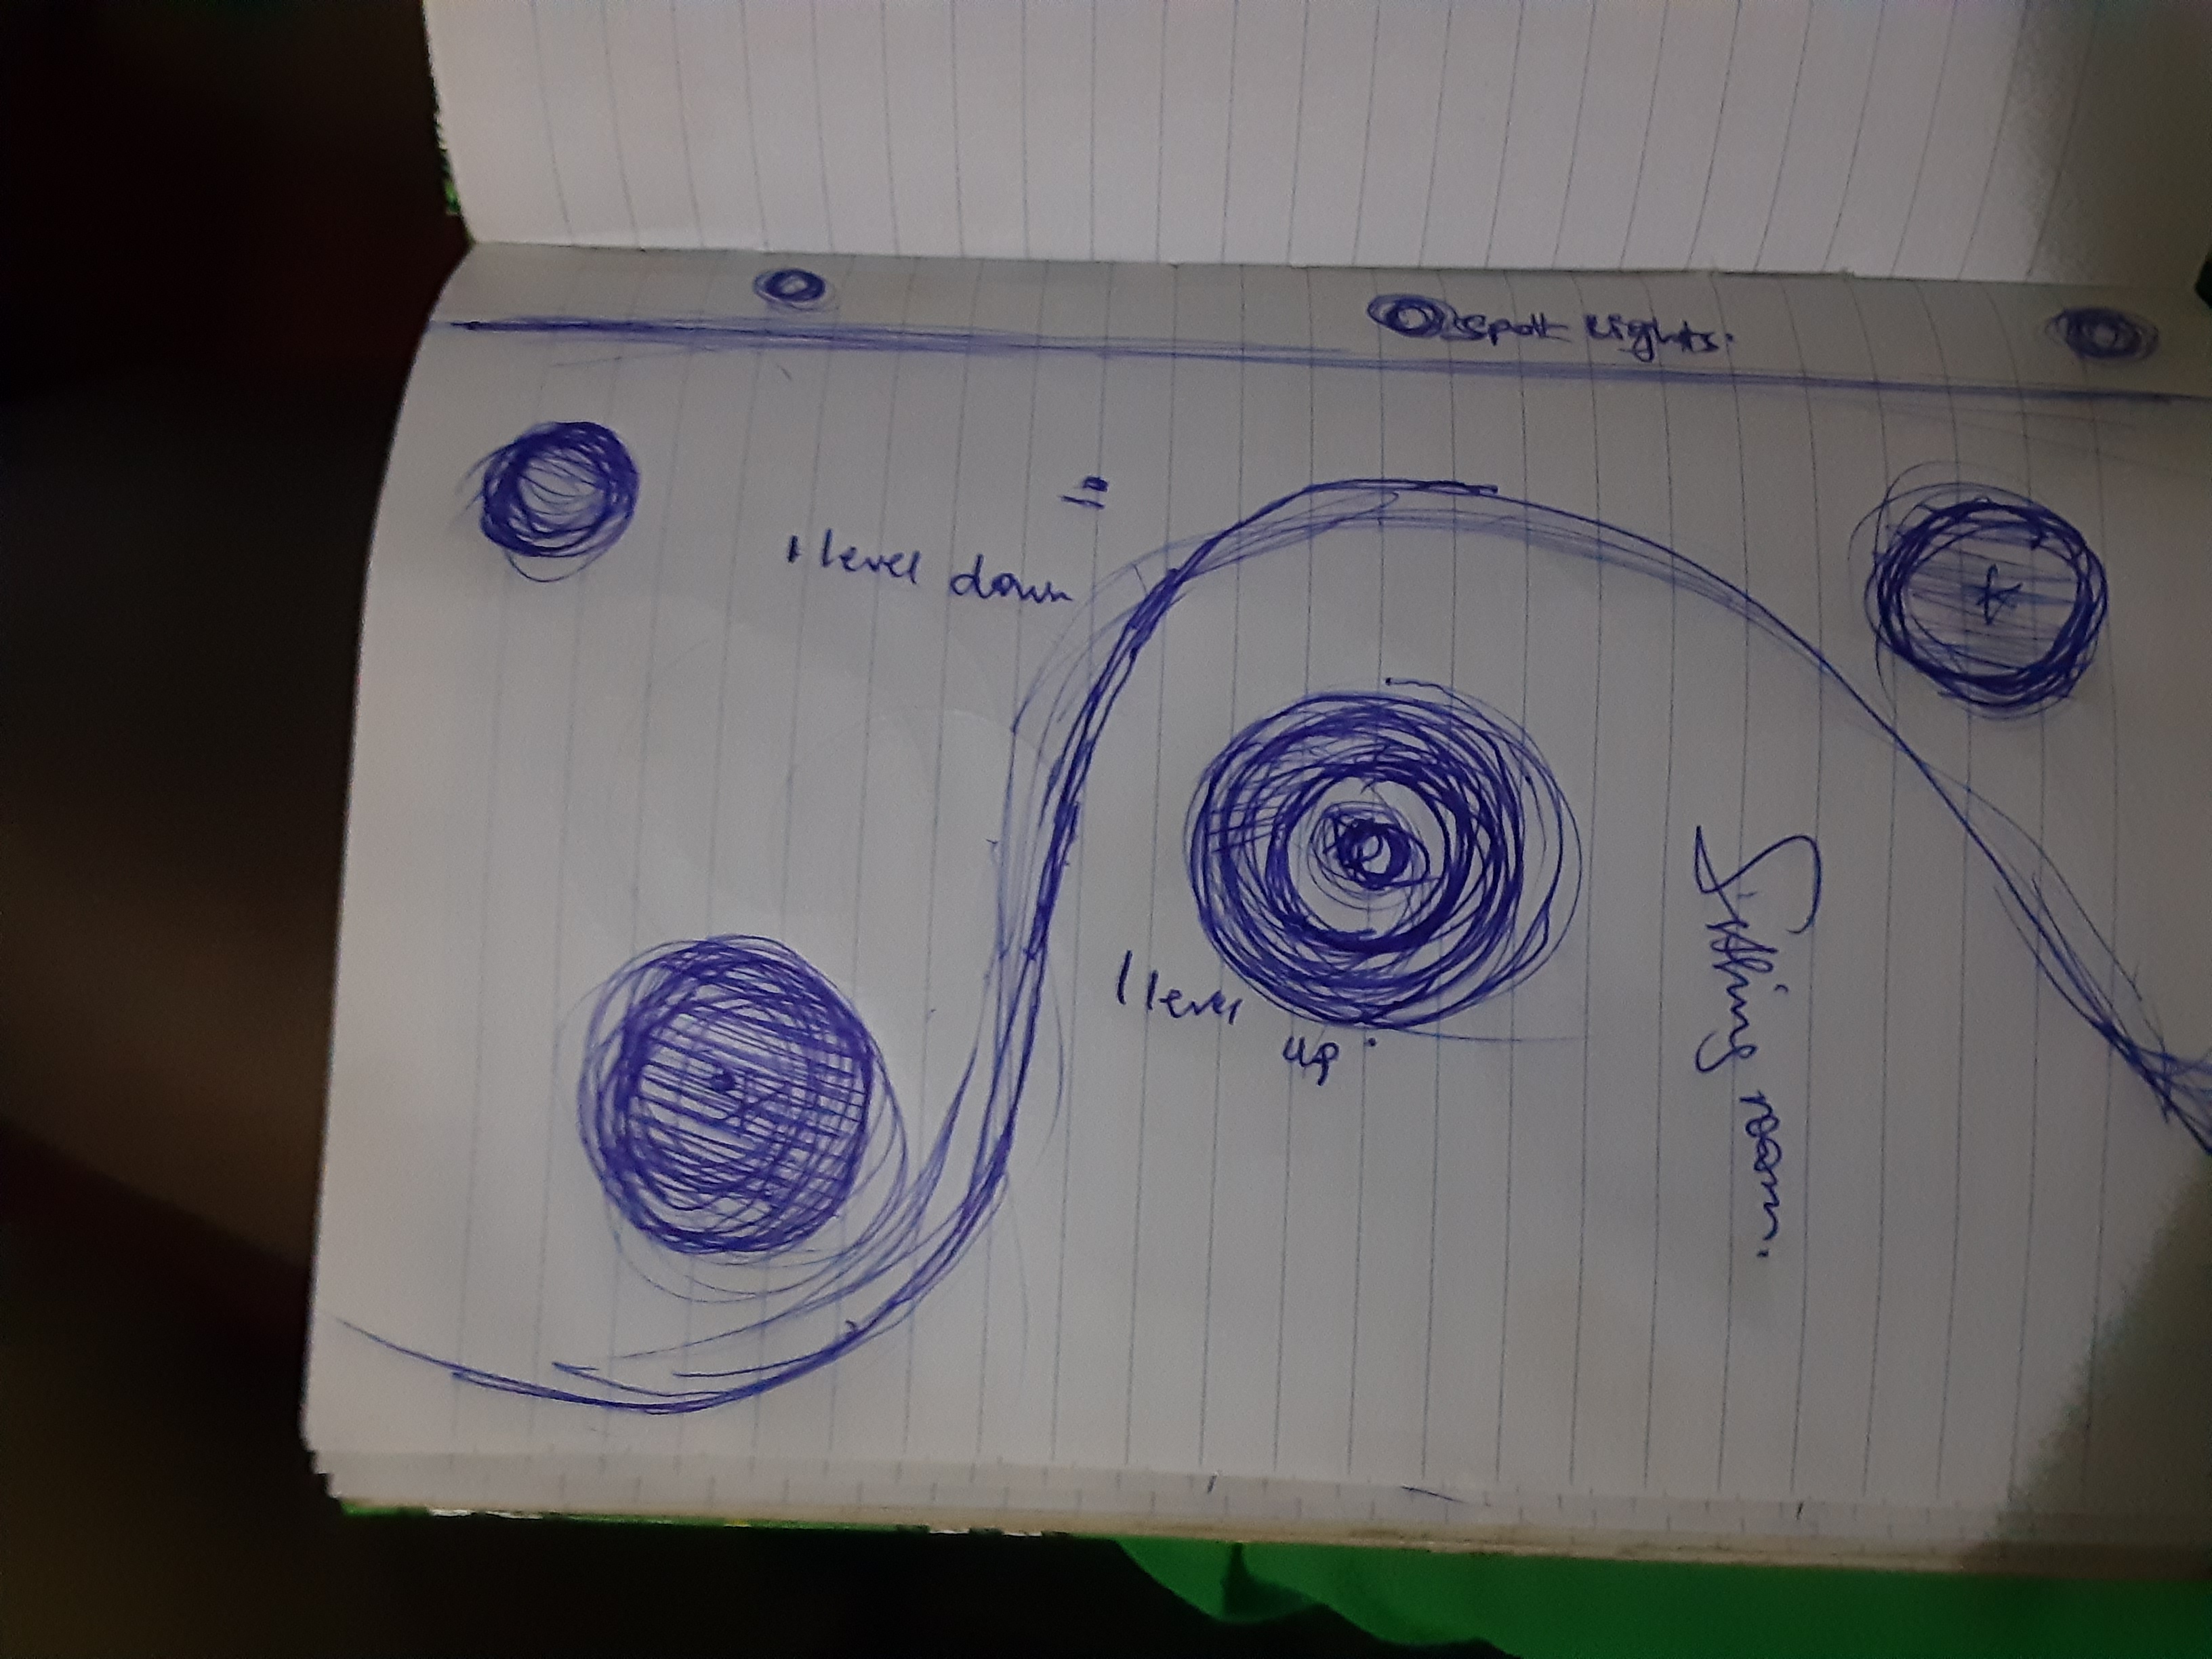 Spott Lights.
1 level down
1 level
up.
Sitting room.